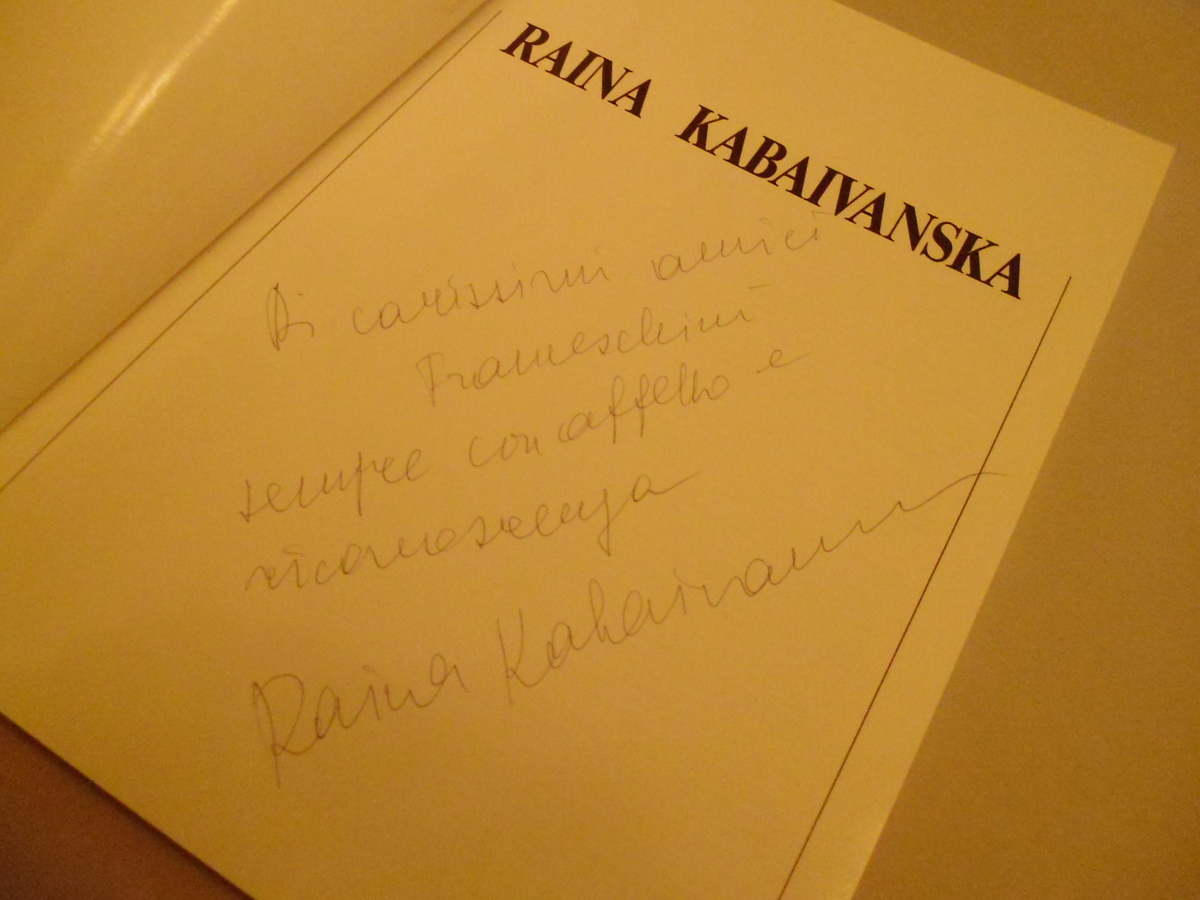 RAINA KABAIVANSKA
Ai carissimi amici
Franceschini
sempre con affetto e
riconoscenza
Raina Kabaivanska